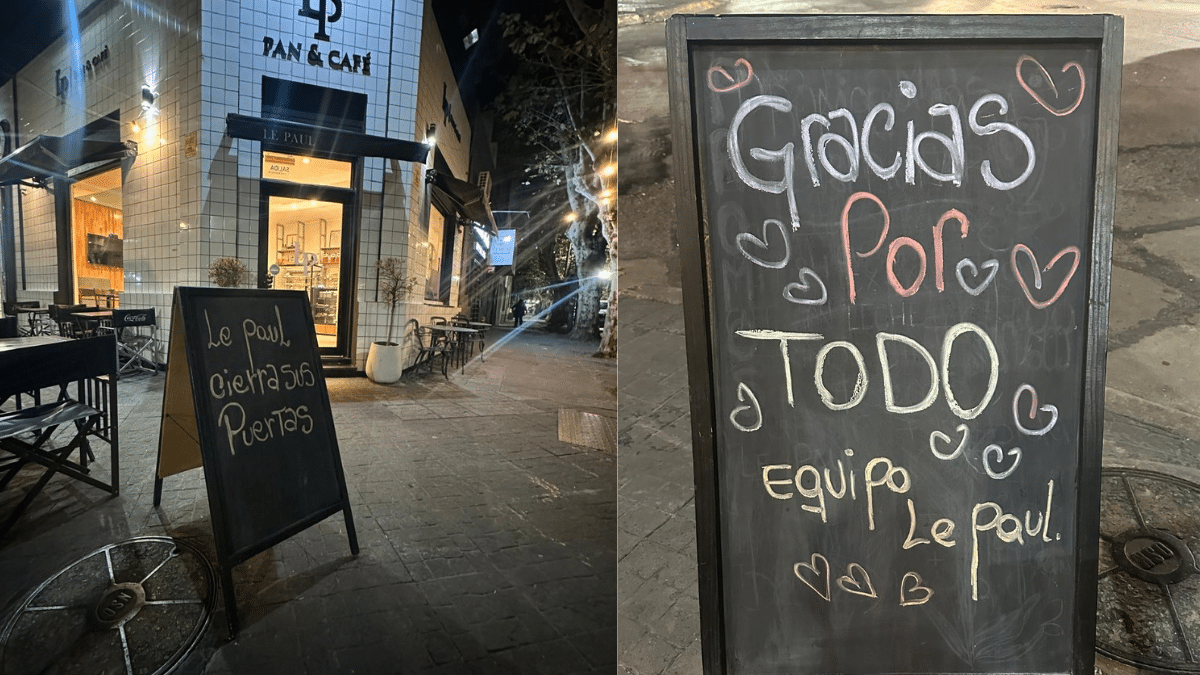 LP
PAN & CAFÉ
LE PAUL
Coca-Cola
Le Paul
cierra sus
Puertas
Gracias
Por
TODO
Equipo
Le Paul.
OSN